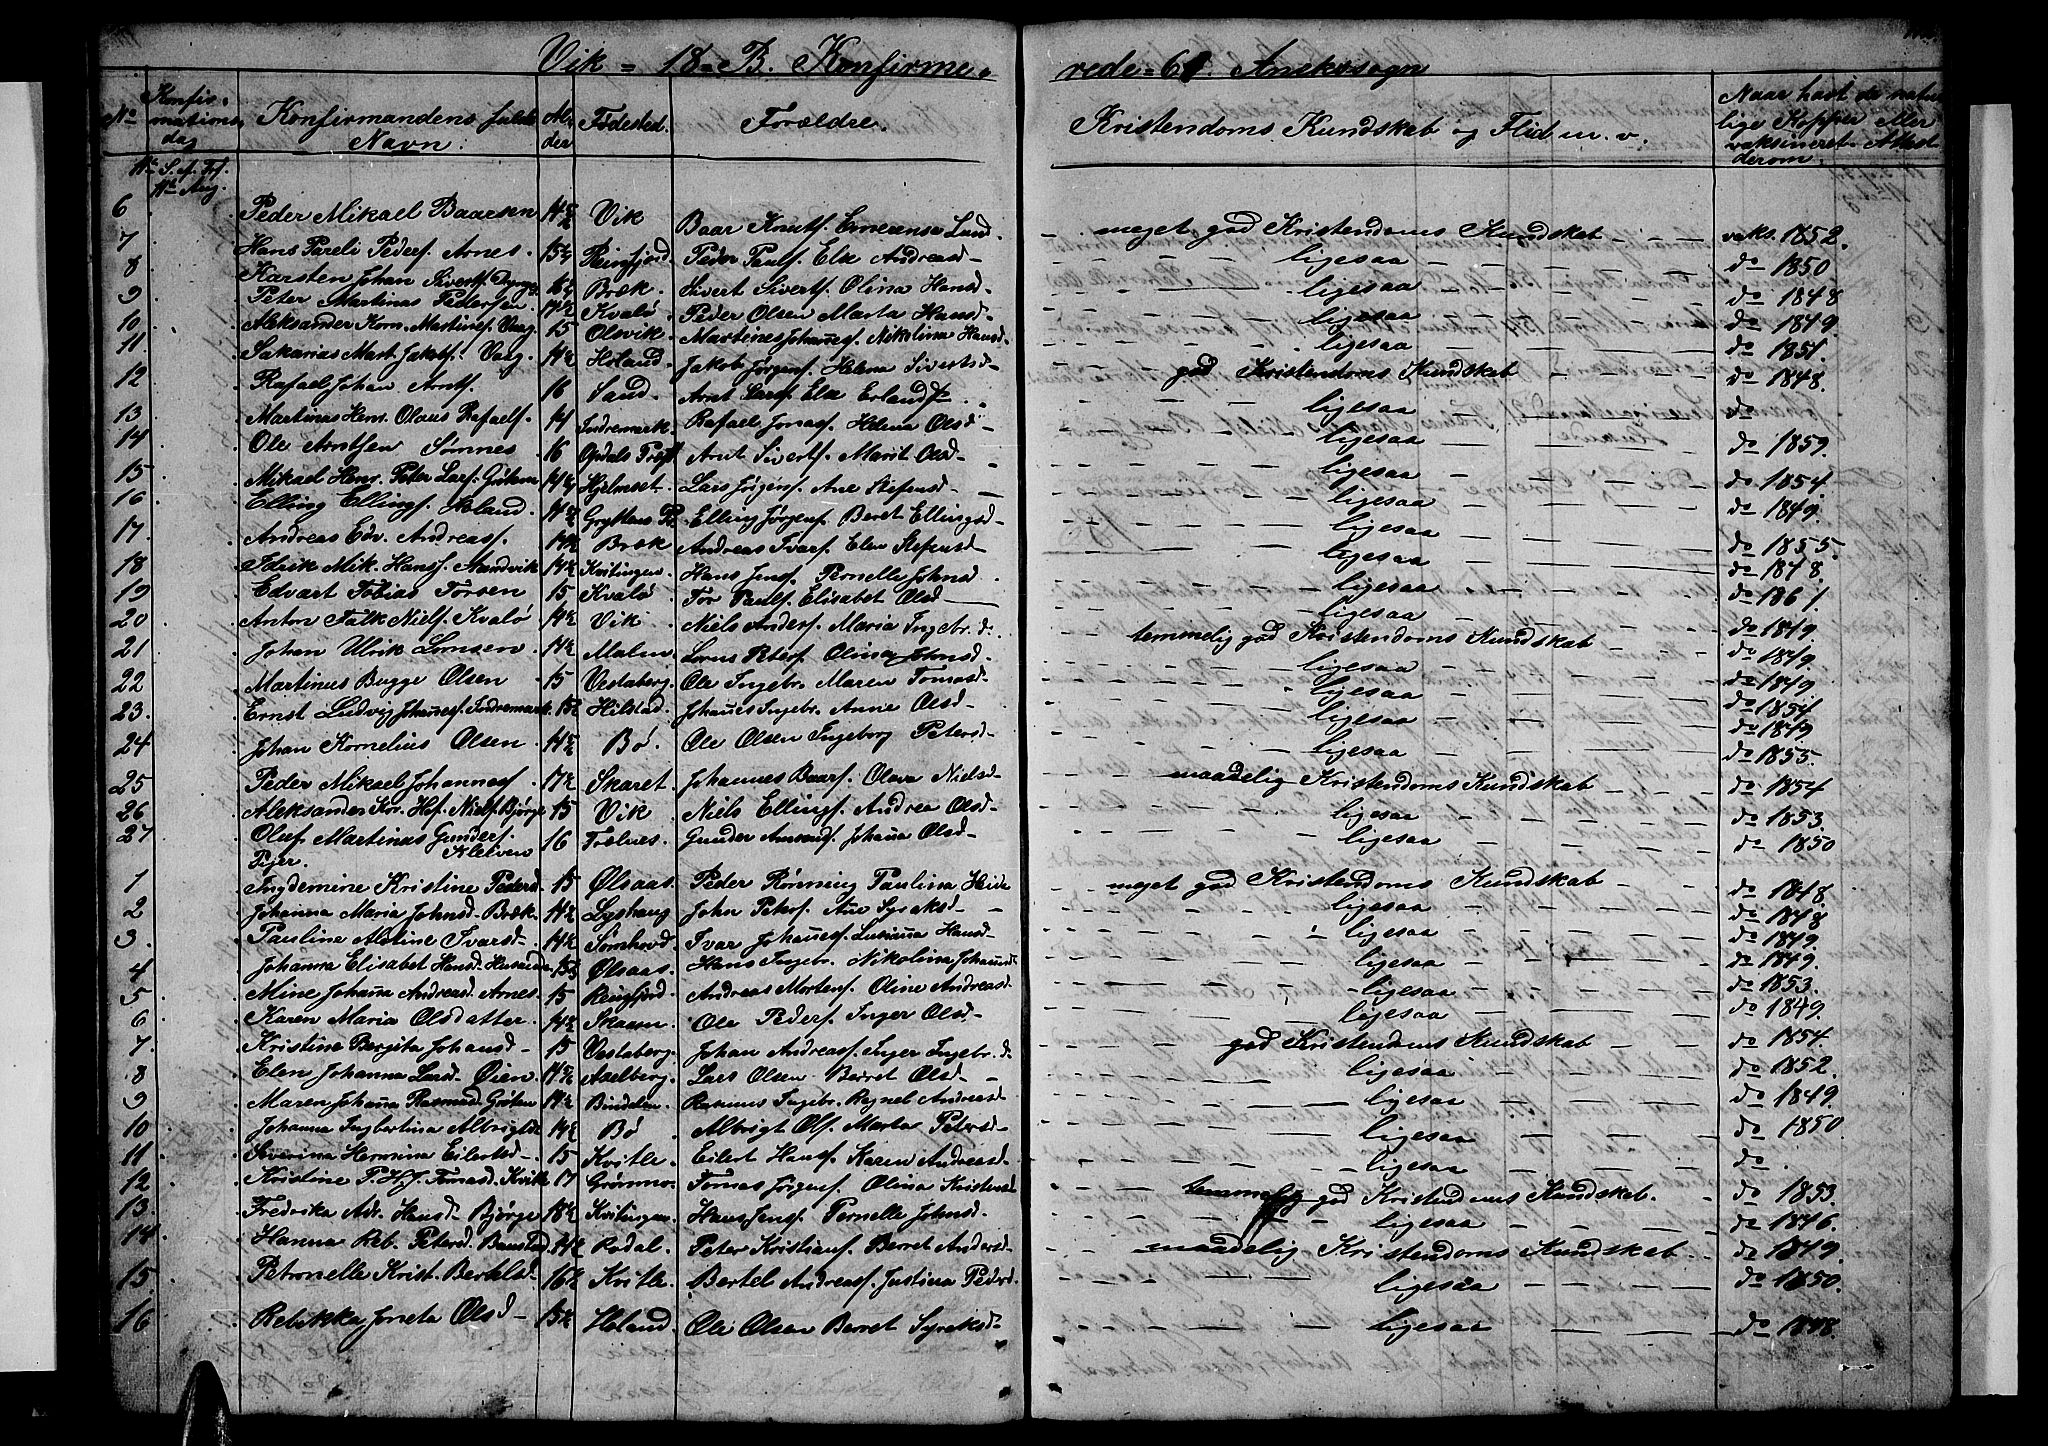 Vik = 18 = B. Konfirme= rede = 61. Annekssogn
No Konfirmations dag Konfirmandens fulde Navn. Alder Fødested. Forældre. Kristendoms Kundskab og Flid m. v. Naar havt de naturlige Kopper eller vaksineret Attest derom.
11te S. ef. Tref. 11te Aug.
6 Peder Mikael Baarsen 14 Vik Baar Knuts. Emerensa Lund meget god Kristendoms Kundskab vaks. 1852.
7 Hans Pareli Peders. Arnes 15 Reinfjord Peder Pauls. Elen Andreasd ligesaa do 1850
8 Karsten Johan Siverts. 16 Bræk Sivert Siverts. Olina Hansd ligesaa do 1848
9 Peter Martinus Pedersen 17½ Kvalø Peder Olsen Marta Hansd ligesaa do 1849
10 Aleksander Korn. Martines. Vaag 15 Olsvik Martines Johannes. Nikolina Hansd ligesaa do 1851.
11 Sakarias Mart. Jakobs. Vaag 14½ Holand Jakob Jørgens. Helena Sivertsd god Kristendoms Kundskab do 1848.
12 Rafael Johan Arnts. 16 Sand Arnt Lars. Elen Erlandsd ligesaa do
13 Martinus Henr. Olaus Rafaels. 14 Indremark Rafael Jonas. Helena Olsd ligesaa do 1859.
14 Ole Arntsen Sømnes 16 Opdals Præst Arnt Siverts. Marit Olsd ligesaa do 1854
15 Mikael Henr. Peter Lars. 14 Hjelmset Lars Jørgens. Ane Stefensd ligesaa do 1849.
16 Elling Ellings. Holand 14½ Gryttens Pr Elling Jørgens. Beret Ellingsd ligesaa do 1855.
17 Andreas Edv. Andreas. 14½ Bræk Andreas Ivars. Elen Stefensd ligesaa do 1848.
18 Idrik Mik. Hans. Sandvik 14½ Kvitingen Hans Jens. Pernelle Johnsd ligesaa do 1861.
19 Edvart Tobias Torsen 15 Kvalø Tor Pauls. Elisabet Olsd ligesaa do 1849.
20 Anton Falk Niels. Kvalø 14½ Vik Niels Anders. Maria Ingebr. d. temmelig god Kristendoms Kundskab do 1849.
21 Johan Ulrik Lornsen 14½ Malm Lorns Peters. Olina Johnsd ligesaa do 1849
22 Martinus Bugge Olsen 15 Vestaberg Ole Ingebr. Maren Tomasd ligesaa do 1854
23. Ernst Ludvig Johannes. Indremark 15½ Hilstad Johannes Ingebr. Anne Olsd ligesaa do 1849
24 Johan Kornelius Olsen 14½ Bø Ole Olsen Ingeborg Petersd ligesaa do 1855.
25 Peder Mikael Johannes. 17½ Skaret Johannes Baars. Olava Nielsd maadelig Kristendoms Kundskab do 1854
26 Aleksander Kor. Niels. Bjørge 15 Vik Niels Ellings. Andrea Olsd ligesaa do 1853.
27 Oluf Martinus Gunders. Kleiven 16 Trælnes Gunder Amunds. Johanna Olsd ligesaa do 1850
Piger.
1 Ingdemine Kristine Pedersd 15 Ølsaas Peder Rønning Paulina Heide meget god Kristendoms Kundskab do 1848.
2 Johanna Maria Johnsd Bræk 14½ Lyshaug John Peters. Ane Syraksd ligesaa do 1848
3. Pauline Aletine Ivarsd 14½ Sømhovd. Ivar Johannes. Lusianna Hansd ligesaa do 1849.
4 Johanna Elisabet Hansd. 15½ Ølsaas. Hans Ingebr. Nikolina Johansd ligesaa do 1849.
5 Mine Johanna Andreasd. Arnes 15 Reinfjord. Andreas Mortens. Oline Andreasd ligesaa do 1853.
6 Karen Maria Olsdatter 14½ Skaam. Ole Peders. Inger Olsd ligesaa do 1849.
7. Kristine Bergita Johansd 15 Vestaberg. Johan Andreas. Inger Ingebr. d. god Kristendoms Kundskab do 1854.
8 Elen Johanna Larsd Øien 14½ Axelberg. Lars Olsen Berret Olsd ligesaa do 1852.
9 Maren Johanna Rasmusd. 14½ Bindalen Rasmus Ingebr. Ragnel Andreasd ligesaa do 1849
10 Johanna Ingbertina Albrigtsd 14½ Bø Albrigt Ols. Marta Petersd ligesaa do 1850.
11 Severina Hermina Eilertsd 15 Kvitle. Eilert Hans. Karen Andreasd ligesaa do
12 Kristine P. H. J. Tomasd. Kvik 17 Grønmo. Tomas Jørgens. Olina Kristensd temmelig god Kristendoms Kundskab. do 1853.
13 Fredrika Adr. Hansd Bjørge 18½ Kvitingen. Hans Jens. Pernelle Johnsd. ligesaa do 1846.
14 Hanna Reb. Petersd. Baustad 14½ Rodal. Peter Kristians. Berret Andersd maadelig Kristendoms Kundskab do 1849.
15. Petronelle Krist. Bertelsd 16½ Kvitle. Bertel Andreas. Justina Pedersd. ligesaa do 1850.
16 Rebikka Joneta Olsd 15½ Holand Ole Olsen Berret Syraksd ligesaa do 1848.